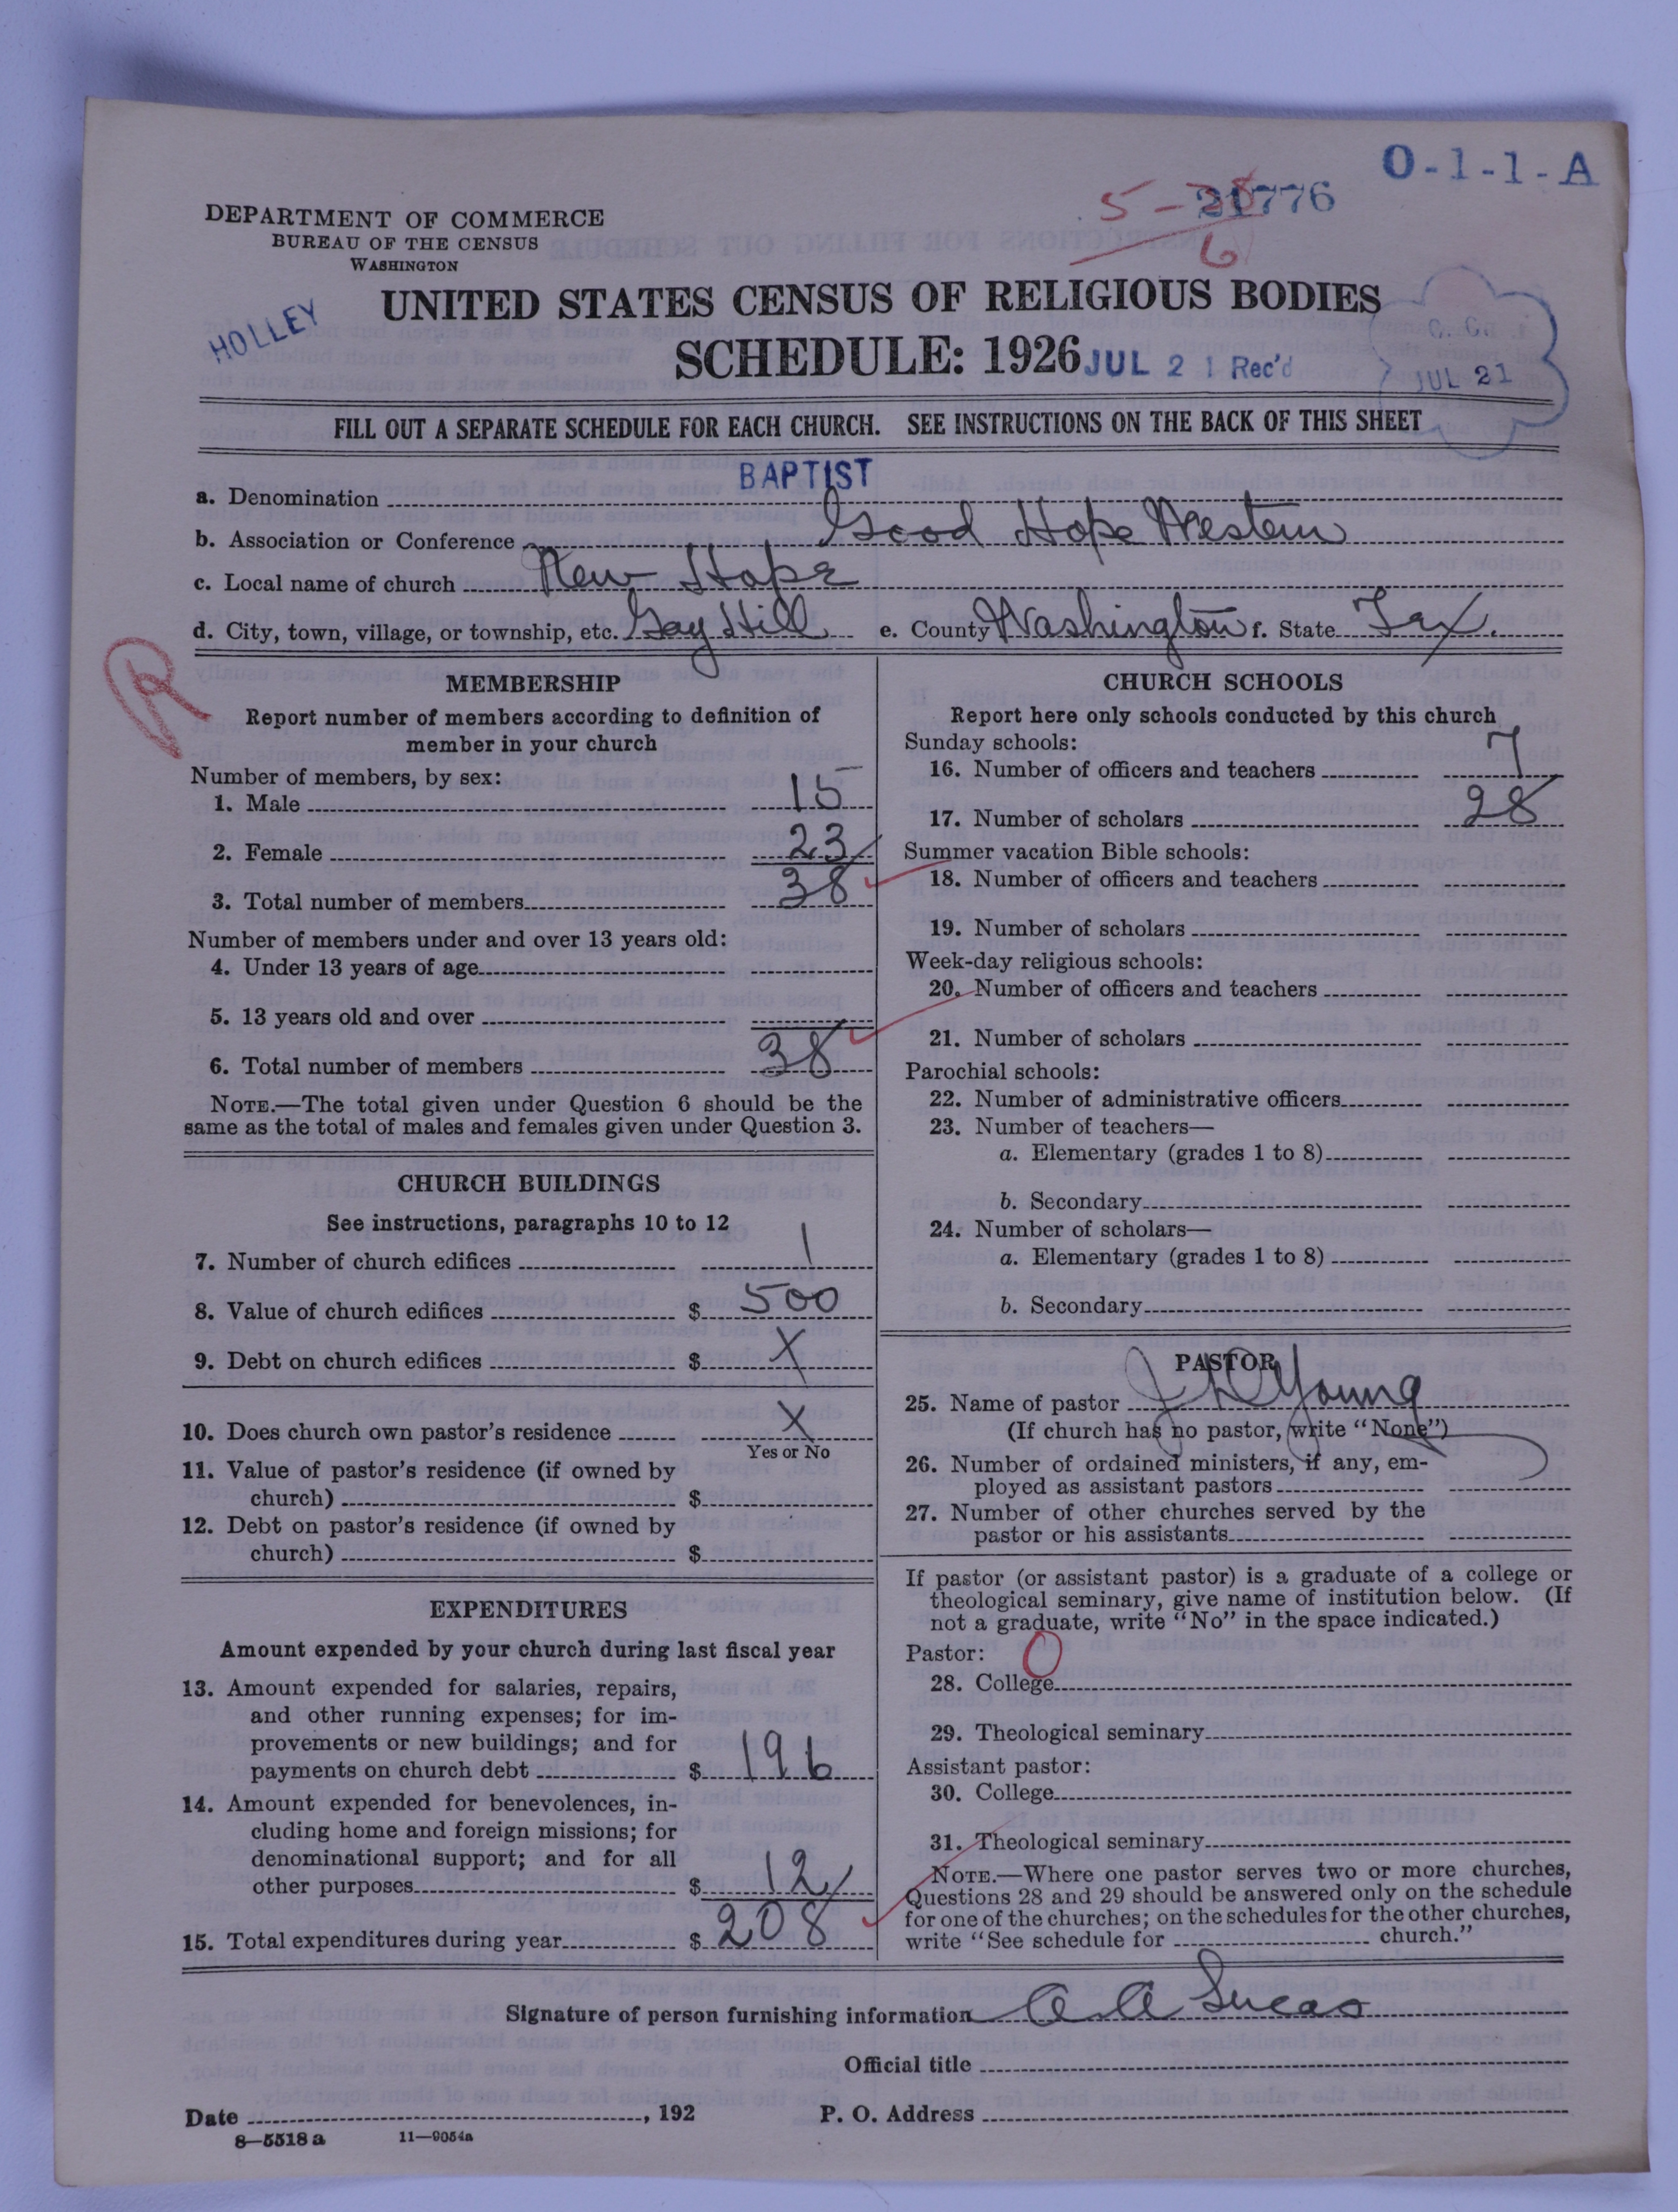 O-1-1-A
21776
5-
6
DEPARTMENT OF COMMERCE
BUREAU OF THE CENSUS
WASHINGTON
HOLLEY
UNITED STATES CENSUS OF RELIGIOUS BODIES
SCHEDULE: 1926 JUL 21 Rec'd
JUL 21
FILL OUT A SEPARATE SCHEDULE FOR EACH CHURCH. SEE INSTRUCTIONS ON THE BACK OF THIS SHEET
a. Denomination BAPTIST
b. Association or Conference Good Hope Western
c. Local name of church New Hope
d. City, town, village, or township, etc. Gay Hill e. County Washington f. State Tex.
R
MEMBERSHIP
Report number of members according to definition of
member in your church
Number of members, by sex:
1. Male 15
2. Female 23
3. Total number of members 38
Number of members under and over 13 years old:
4. Under 13 years of age
5. 13 years old and over
6. Total number of members 38
NOTE.—The total given under Question 6 should be the
same as the total of males and females given under Question 3.
CHURCH BUILDINGS
See instructions, paragraphs 10 to 12
7. Number of church edifices 1
8. Value of church edifices $ 500
9. Debt on church edifices $ X
10. Does church own pastor's residence X
Yes or No
11. Value of pastor's residence (if owned by
church) $
12. Debt on pastor's residence (if owned by
church) $
EXPENDITURES
Amount expended by your church during last fiscal year
13. Amount expended for salaries, repairs,
and other running expenses; for im-
provements or new buildings; and for
payments on church debt $ 196
14. Amount expended for benevolences, in-
cluding home and foreign missions; for
denominational support; and for all
other purposes $ 12
15. Total expenditures during year $ 208
CHURCH SCHOOLS
Report here only schools conducted by this church
Sunday schools:
16. Number of officers and teachers 7
17. Number of scholars 28
Summer vacation Bible schools:
18. Number of officers and teachers
19. Number of scholars
Week-day religious schools:
20. Number of officers and teachers
21. Number of scholars
Parochial schools:
22. Number of administrative officers
23. Number of teachers—
a. Elementary (grades 1 to 8)
b. Secondary
24. Number of scholars—
a. Elementary (grades 1 to 8)
b. Secondary
PASTOR
25. Name of pastor Young
(If church has no pastor, write "None")
26. Number of ordained ministers, if any, em-
ployed as assistant pastors
27. Number of other churches served by the
pastor or his assistants
If pastor (or assistant pastor) is a graduate of a college or
theological seminary, give name of institution below. (If
not a graduate, write "No" in the space indicated.)
Pastor: 0
28. College
29. Theological seminary
Assistant pastor:
30. College
31. Theological seminary
NOTE.—Where one pastor serves two or more churches,
Questions 28 and 29 should be answered only on the schedule
for one of the churches; on the schedules for the other churches,
write "See schedule for church."
Signature of person furnishing information A A Lucas
Official title
Date , 192 P. O. Address
8—5518 a 11—9054a